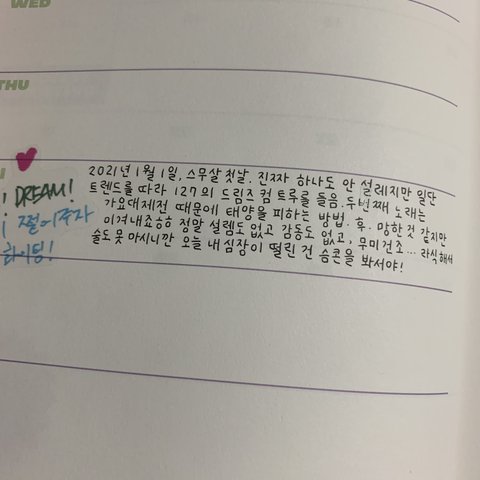 WED
THU
2021년 1월 1일, 스무살 첫날. 진짜 하나도 안 설레지만 일단
트렌드를 따라 127의 드림즈 컴 트루를 들음. 두번째 노래는
가요대제전 때문에 태양을 피하는 방법. 후. 망한 것 같지만
이겨내죠ㅎㅎ 정말 설렘도 없고 감동도 없고, 무미건조... 라식해서
술도 못 마시니깐 오늘 내 심장이 떨린 건 슴콘을 봐서야!
! DREAM!
! 쩔어주자
화이팅!